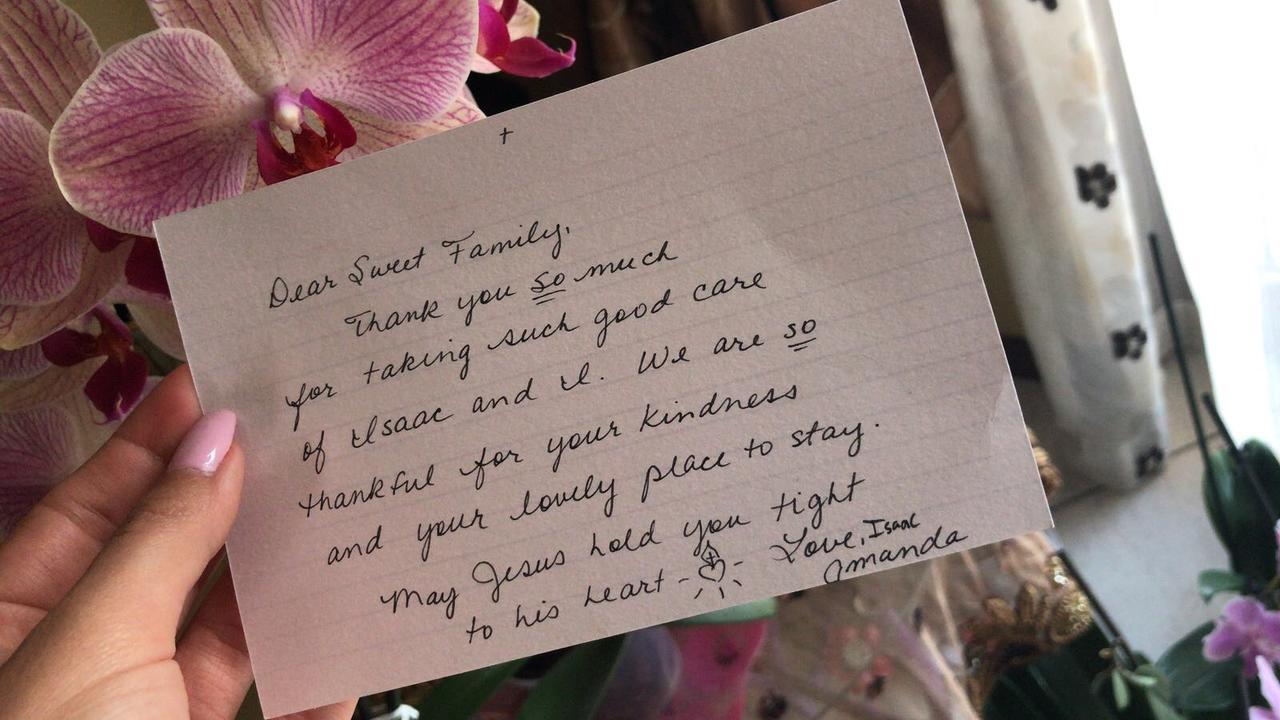 †
Dear Sweet Family,
Thank you so much
for taking such good care
of Isaac and I. We are so
thankful for your kindness
and your lovely place to stay.
May Jesus hold you tight
to his heart - Love, Isaac
Amanda